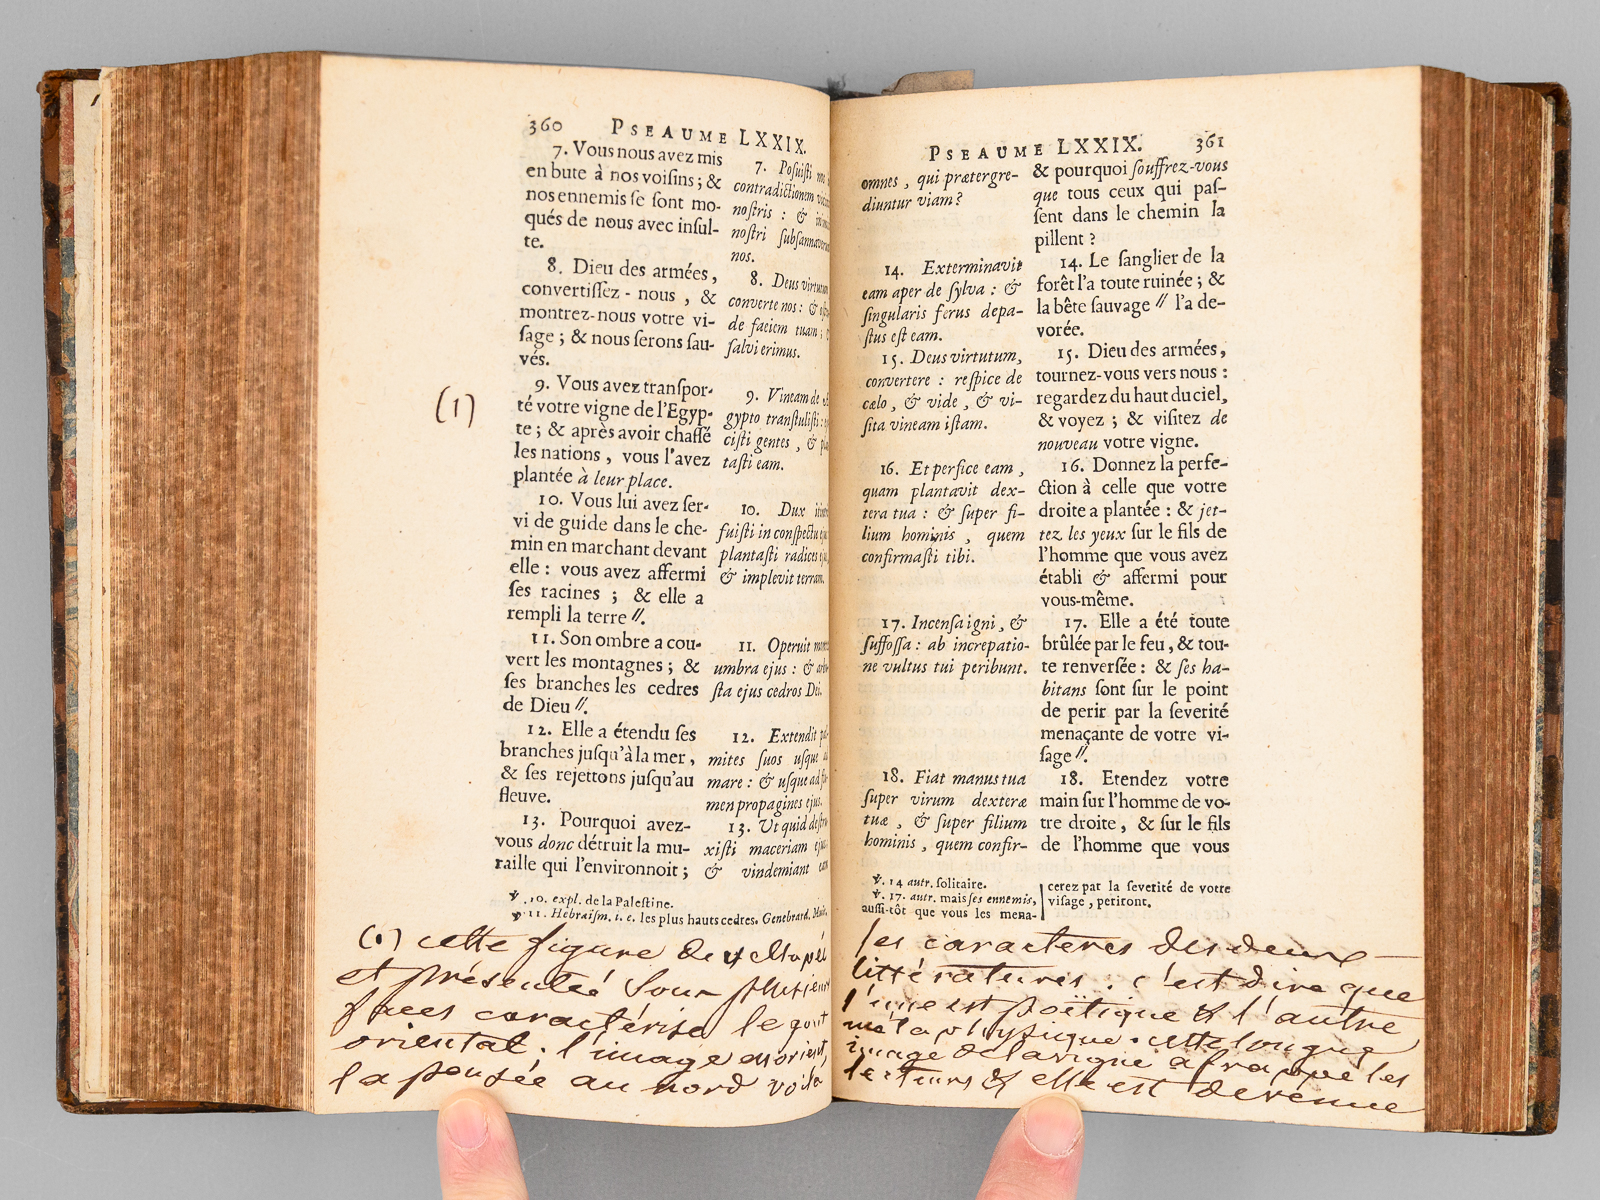 360 PSEAUME LXXIX.
7. Vous nous avez mis
en bute à nos voiſins; &
nos ennemis ſe ſont mo-
qués de nous avec inſul-
te.
8. Dieu des armées,
convertiſſez-nous, &
montrez-nous votre vi-
ſage; & nous ſerons ſau-
vés.
(1)
9. Vous avez tranſpor-
té votre vigne de l'Egyp-
te; & après avoir chaſſé
les nations, vous l'avez
plantée à leur place.
10. Vous lui avez ſer-
vi de guide dans le che-
min en marchant devant
elle: vous avez affermi
ſes racines; & elle a
rempli la terre //.
11. Son ombre a cou-
vert les montagnes; &
ſes branches les cedres
de Dieu //.
12. Elle a étendu ſes
branches juſqu'à la mer,
& ſes rejettons juſqu'au
fleuve.
13. Pourquoi avez-
vous donc détruit la mu-
raille qui l'environnoit;
7. Poſuiſti
contradictionem
noſtris: &
noſtri ſubſannaverunt
nos.
8. Deus virtutum
converte nos: &
de faciem tuam;
ſalvi erimus.
9. Vineam de
gypto tranſtuliſti:
ciſti gentes, &
taſti eam.
10. Dux
fuiſti in conſpectu
plantaſti radices
& implevit terram.
11. Operuit
umbra ejus: &
ſta ejus cedros Dei.
12. Extendit
mites ſuos uſque
mare: & uſque ad
men propagines ejus.
13. Ut quid
xiſti maceriam
& vindemiant
℣. 10. expl. de la Paleſtine.
℣. 11. Hébraiſm. i. e. les plus hauts cedres. Genebrard.
(1) cette figure
et présentée sous plusieurs
faces caractérise le gout
oriental; l'image
la pensée au nord voilà
PSEAUME LXXIX. 361
omnes, qui prætergre-
diuntur viam?
14. Exterminavit
eam aper de ſylva: &
ſingularis ferus depa-
ſtus eſt eam.
15. Deus virtutum,
convertere: reſpice de
cœlo, & vide, & vi-
ſita vineam iſtam.
16. Et perfice eam,
quam plantavit dex-
tera tua: & ſuper fi-
lium hominis, quem
confirmaſti tibi.
17. Incenſa igni, &
ſuffoſſa: ab increpatio-
ne vultus tui peribunt.
18. Fiat manus tua
ſuper virum dexteræ
tuæ, & ſuper filium
hominis, quem confir-
& pourquoi ſouffrez-vous
que tous ceux qui paſ-
ſent dans le chemin la
pillent?
14. Le ſanglier de la
forêt l'a toute ruinée; &
la bête ſauvage // l'a de-
vorée.
15. Dieu des armées,
tournez-vous vers nous:
regardez du haut du ciel,
& voyez; & viſitez de
nouveau votre vigne.
16. Donnez la perfe-
ction à celle que votre
droite a plantée: & jet-
tez les yeux sur le fils de
l'homme que vous avez
établi & affermi pour
vous-même.
17. Elle a été toute
brûlée par le feu, & tou-
te renverſée: & ſes ha-
bitans ſont ſur le point
de perir par la ſeverité
menaçante de votre vi-
ſage //.
18. Etendez votre
main ſur l'homme de vo-
tre droite, & ſur le fils
de l'homme que vous
℣. 14 autr. ſolitaire.
℣. 17. autr. mais ſes ennemis,
auſſi-tôt que vous les mena-
cerez par la ſeverité de votre
viſage, periront.
les caracteres des deux
littératures: c'est dire que
l'une est poëtique & l'autre
métaphysique. cette longue
image de la vigne a frappé les
lecteurs & elle est devenue